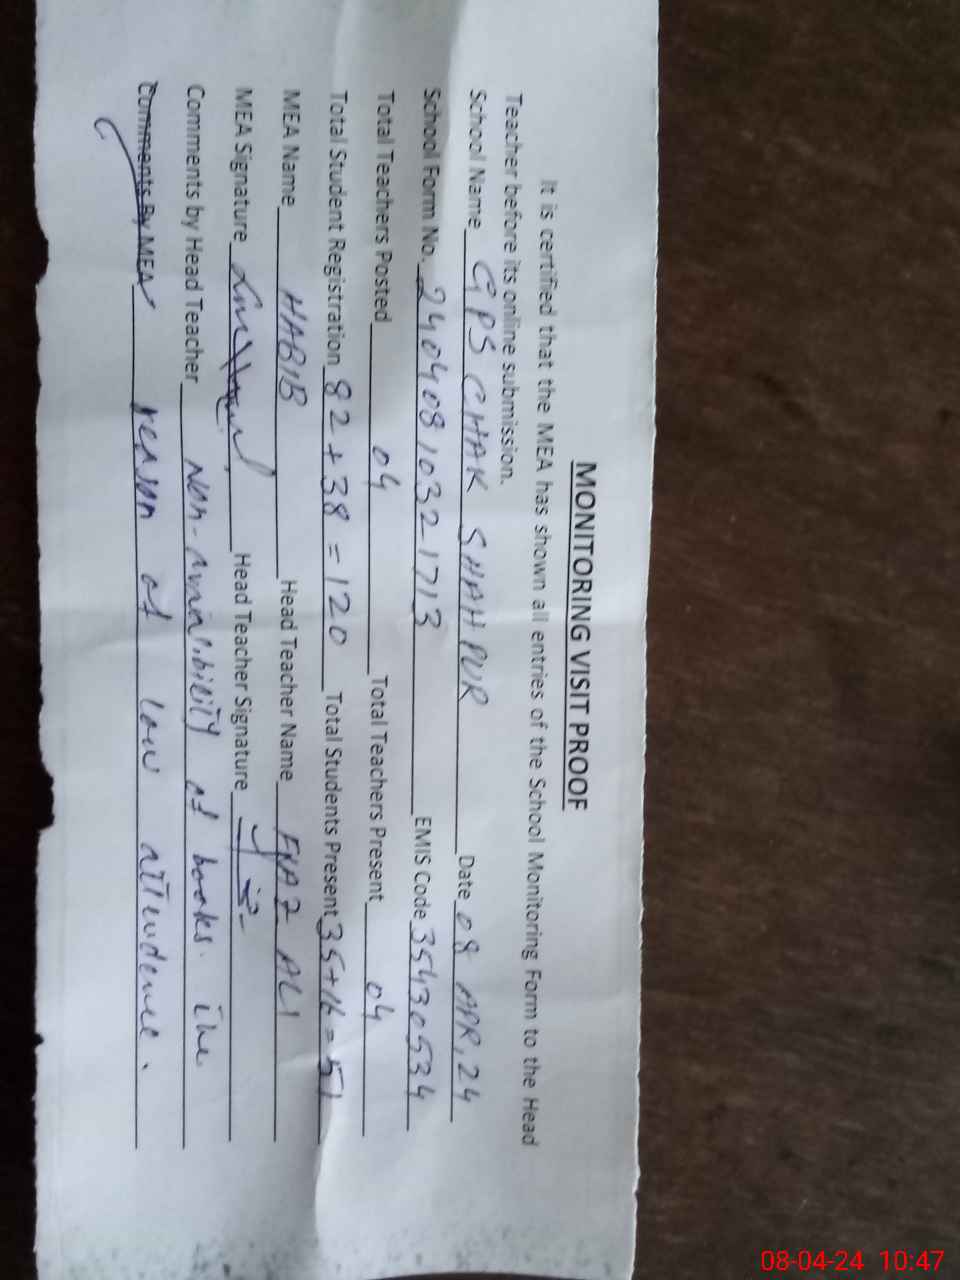 MONITORING VISIT PROOF
It is certified that the MEA has shown all entries of the School Monitoring Form to the Head
Teacher before its online submission.
School Name GPS CHAK SHAHPUR Date 08 APR, 24
School Form No. 24040810321713 EMIS Code 35430534
Total Teachers Posted 04 Total Teachers Present 04
Total Student Registration 82+38=120 Total Students Present 35+16=51
MEA Name HABIB Head Teacher Name ALI
MEA Signature Head Teacher Signature
Comments by Head Teacher Non-availability of books. the
Comments By MEA reason of low attendence.
08-04-24 10:47